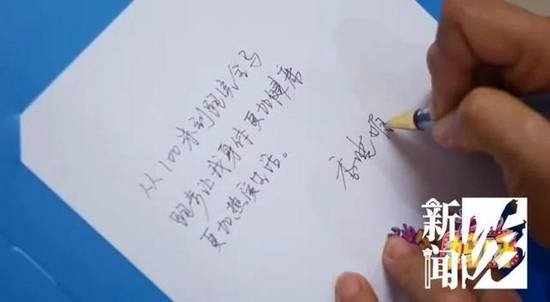 从100米到跑完全马
跑步让我身体更加健康
更加热爱生活。
新闻坊